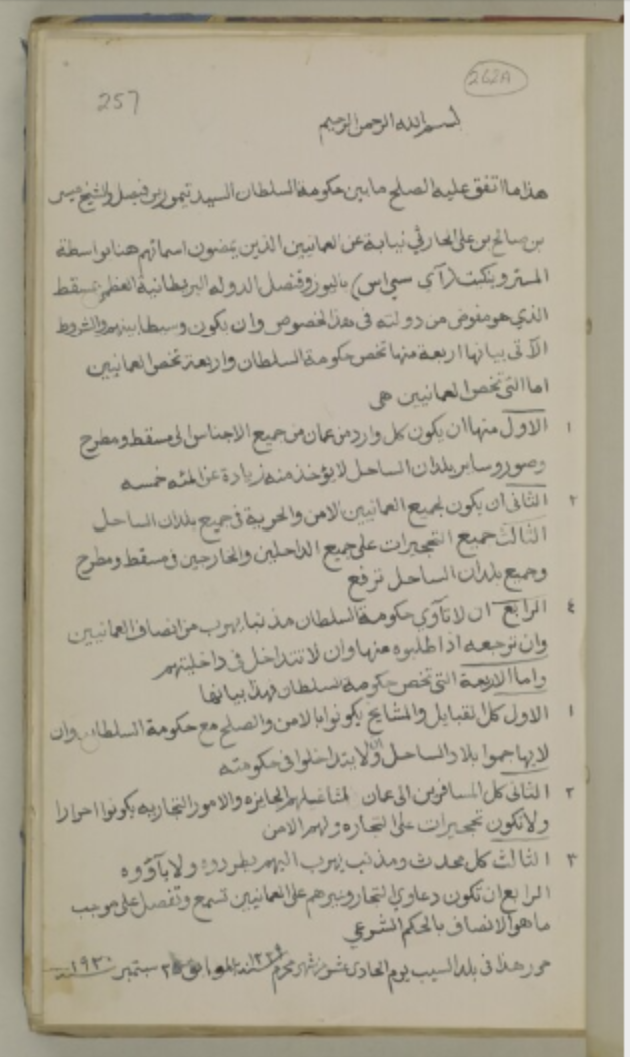 262A
257
بسم الله الرحمن الرحيم
هذا ما اتفق عليه الصلح ما بين حكومة السلطان السيد تيمور بن فيصل والشيخ عيسى
بن صالح بن علي الحارثي نيابة عن العمانيين الذين يمضون اسمائهم هنا بواسطة
المستر وينكيت (آي سي اس) باليوز وقنصل الدوله البريطانية العظمى بمسقط
الذي هو مفوض من دولته في هذا الخصوص وان يكون وسيطا بينهم والشروط
الآتي بيانها اربعة منها تخص حكومة السلطان واربعة تخص العمانيين
اما التي تخص العمانيين هي
١ الاول منها ان يكون كل وارد من عمان من جميع الاجناس الى مسقط ومطرح
وصور وساير بلدان الساحل لا يؤخذ منه زيادة عن المئه خمسه
٢ الثاني ان يكون لجميع العمانيين الامن والحرية في جميع بلدان الساحل
الثالث جميع التحجيرات على جميع الداخلين والخارجين في مسقط ومطرح
وجميع بلدان الساحل ترفع
٤ الرابع ان لا تآوي حكومة السلطان مذنبا يهرب من انصاف العمانيين
وان ترجعه اذا طلبوه منها وان لا تتداخل في داخليتهم
واما الاربعة التي تخص حكومة السلطان فهذا بيانها
١ الاول كل القبايل والمشايخ يكونوا بالامن والصلح مع حكومة السلطان وان
لا يهاجموا بلاد الساحل وان لا يتداخلوا في حكومته
٢ الثاني كل المسافرين الى عمان لمشاغيلهم الجايزه والامور التجاريه يكونوا احرارا
ولا تكون تحجيرات على التجاره ولهم الامن
٣ الثالث كل محدث ومذنب يهرب اليهم يطردوه ولا يآؤوه
الرابع ان تكون دعاوي التجار وغيرهم على العمانيين تسمع وتفصل على موجب
ما هو الانصاف بالحكم الشرعي
حرر هذا في بلد السيب يوم الحادي عشر من شهر محرم سنة ١٣٣٩ الموافق ٢٥ سبتمبر سنة ١٩٢٠